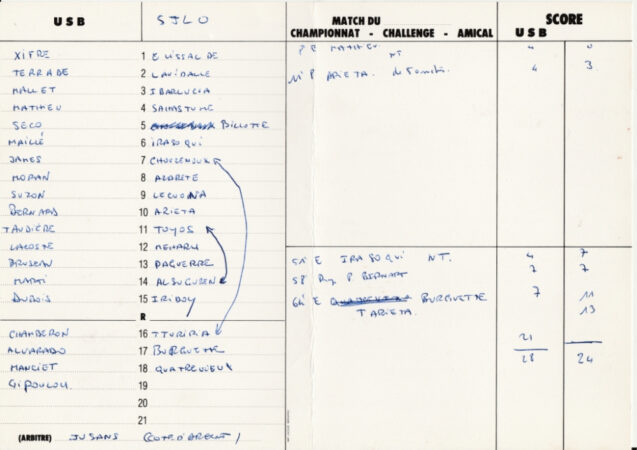 U S B SJLO
MATCH DU
CHAMPIONNAT - CHALLENGE - AMICAL
SCORE
U S B
XIFRE 1 ELISSALDE
TERRADE 2 LAVIDALLE
MALLET 3 IBARLUCIA
MATHIEU 4 SAHASTUME
SECO 5 BILLOTTE
MAILLÉ 6 IRASOQUI
JAMES 7
MORAN 8 ALDRETE
SUZON 9 LECUONA
BERNARD 10 ARIETA
TAUDIÈRE 11 TOYOS
LACOSTE 12 MEHARU
BRUSEAU 13 DAGUERRE
MARTI 14 ALSUGUREN
DUBOIS 15 IRIBOY
R
CHAMBERON 16 ITURIRIA
ALVARADO 17 BURGUETTE
MANCIET 18 QUATREVIEUX
GIPOULOU 19
20
21
(ARBITRE) JUSANS (COTE D'ARGENT)
P E MATHIEU NT 4 0
11' P ARIETA. 4 3
E IRASOQUI NT. 4 7
58' P BERNART 7 7
64' E BURGUETTE 7 11
T ARIETA. 13
21
28 24